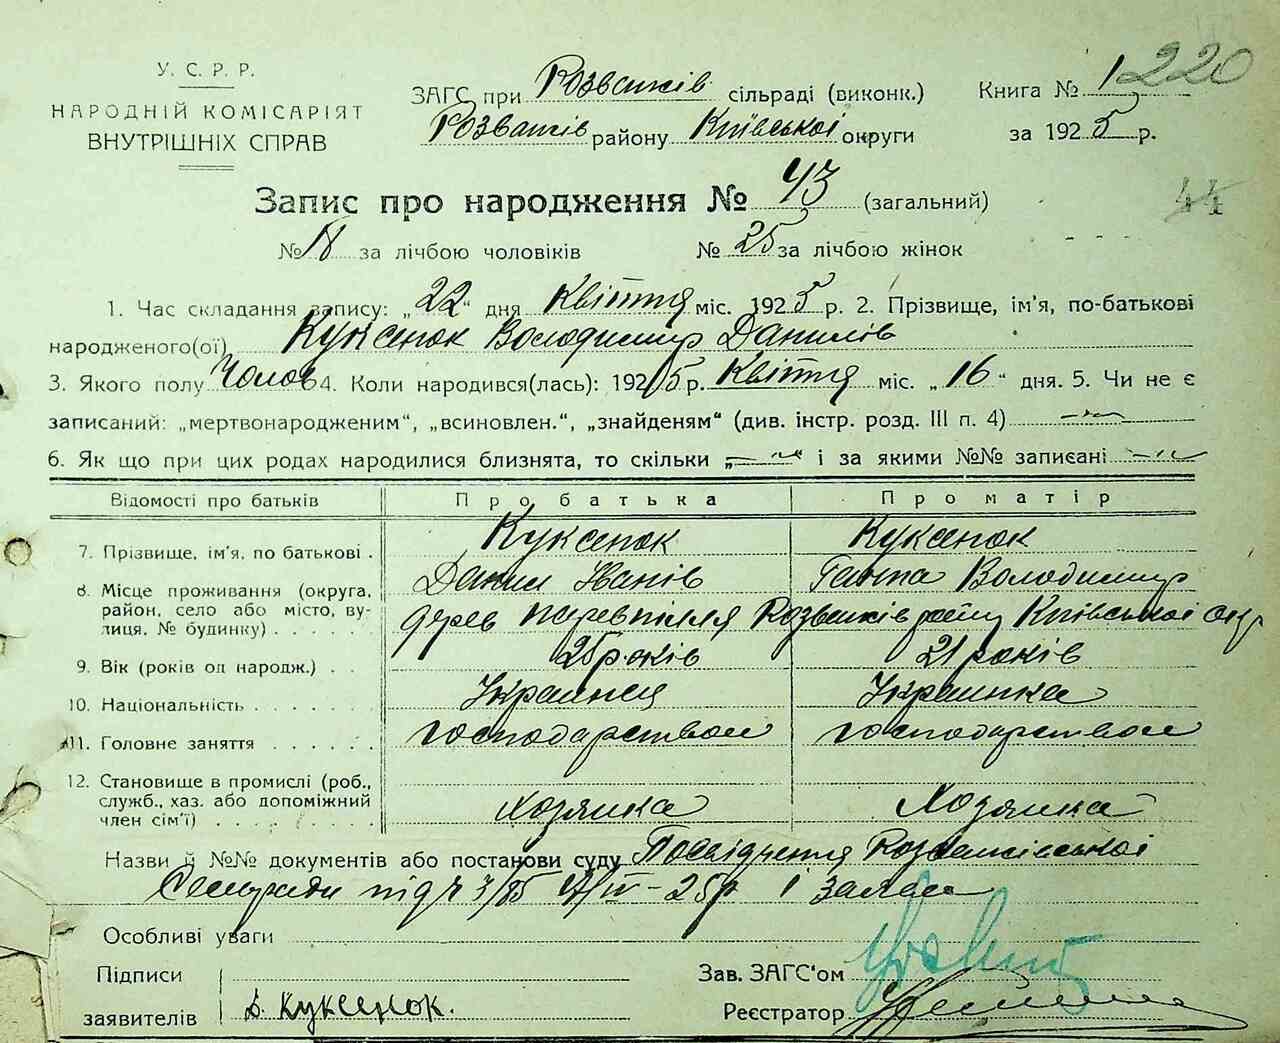 220
У. С. Р. Р.
НАРОДНІЙ КОМІСАРІЯТ
ВНУТРІШНІХ СПРАВ
ЗАГС при Розважів сільраді (виконк.)
Розважів району Київської округи
Книга № 1
за 1925 р.
Запис про народження № 43 (загальний)
44
№ 18 за лічбою чоловіків № 25 за лічбою жінок
1. Час складання запису: „22“ дня Квітня міс. 1925 р. 2. Прізвище, ім'я, по-батькові
народженого(ої) Куксенок Володимир Данилів
3. Якого полу Чолов 4. Коли народився(лась): 1925 р. Квітня міс. „16“ дня. 5. Чи не є
записаний: „мертвонародженим“, „всиновлен.“, „знайденям“ (див. інстр. розд. III п. 4)
6. Як що при цих родах народилися близнята, то скільки „ “ і за якими №№ записані
Відомості про батьків Про батька Про матір
7. Прізвище, ім'я, по батькові . Куксенок Куксенок
Данил Іванів Ганна Володимир
8. Місце проживання (округа,
район, село або місто, ву-
лиця, № будинку) . . . . . . дерев Розважів району Київської окр
9. Вік (років од народж.) . . 25 років 21 років
10. Національність . . . . . . . Українця Українка
11. Головне заняття . . . . . . господарством господарством
12. Становище в промислі (роб.,
служб., хаз. або допоміжний
член сім'ї) . . . . . . . . . Хозяина Хозяина
Назви й №№ документів або постанови суду Посвідчення Розважівської
Сельради під ч 3/85 25р і
Особливі уваги
Підписи
заявителів Д. Куксенок.
Зав. ЗАГС'ом
Реєстратор